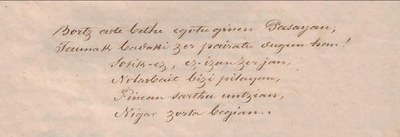 Bortz aste bethe egotu ginen Pasayan,
Jaunak badaki zer pairatu dugun han!
Sosik-ez, ez-izan zer jan,
Nolarbait bizi pilayan,
Finean sarthu untzian,
Nigar zorta begian.